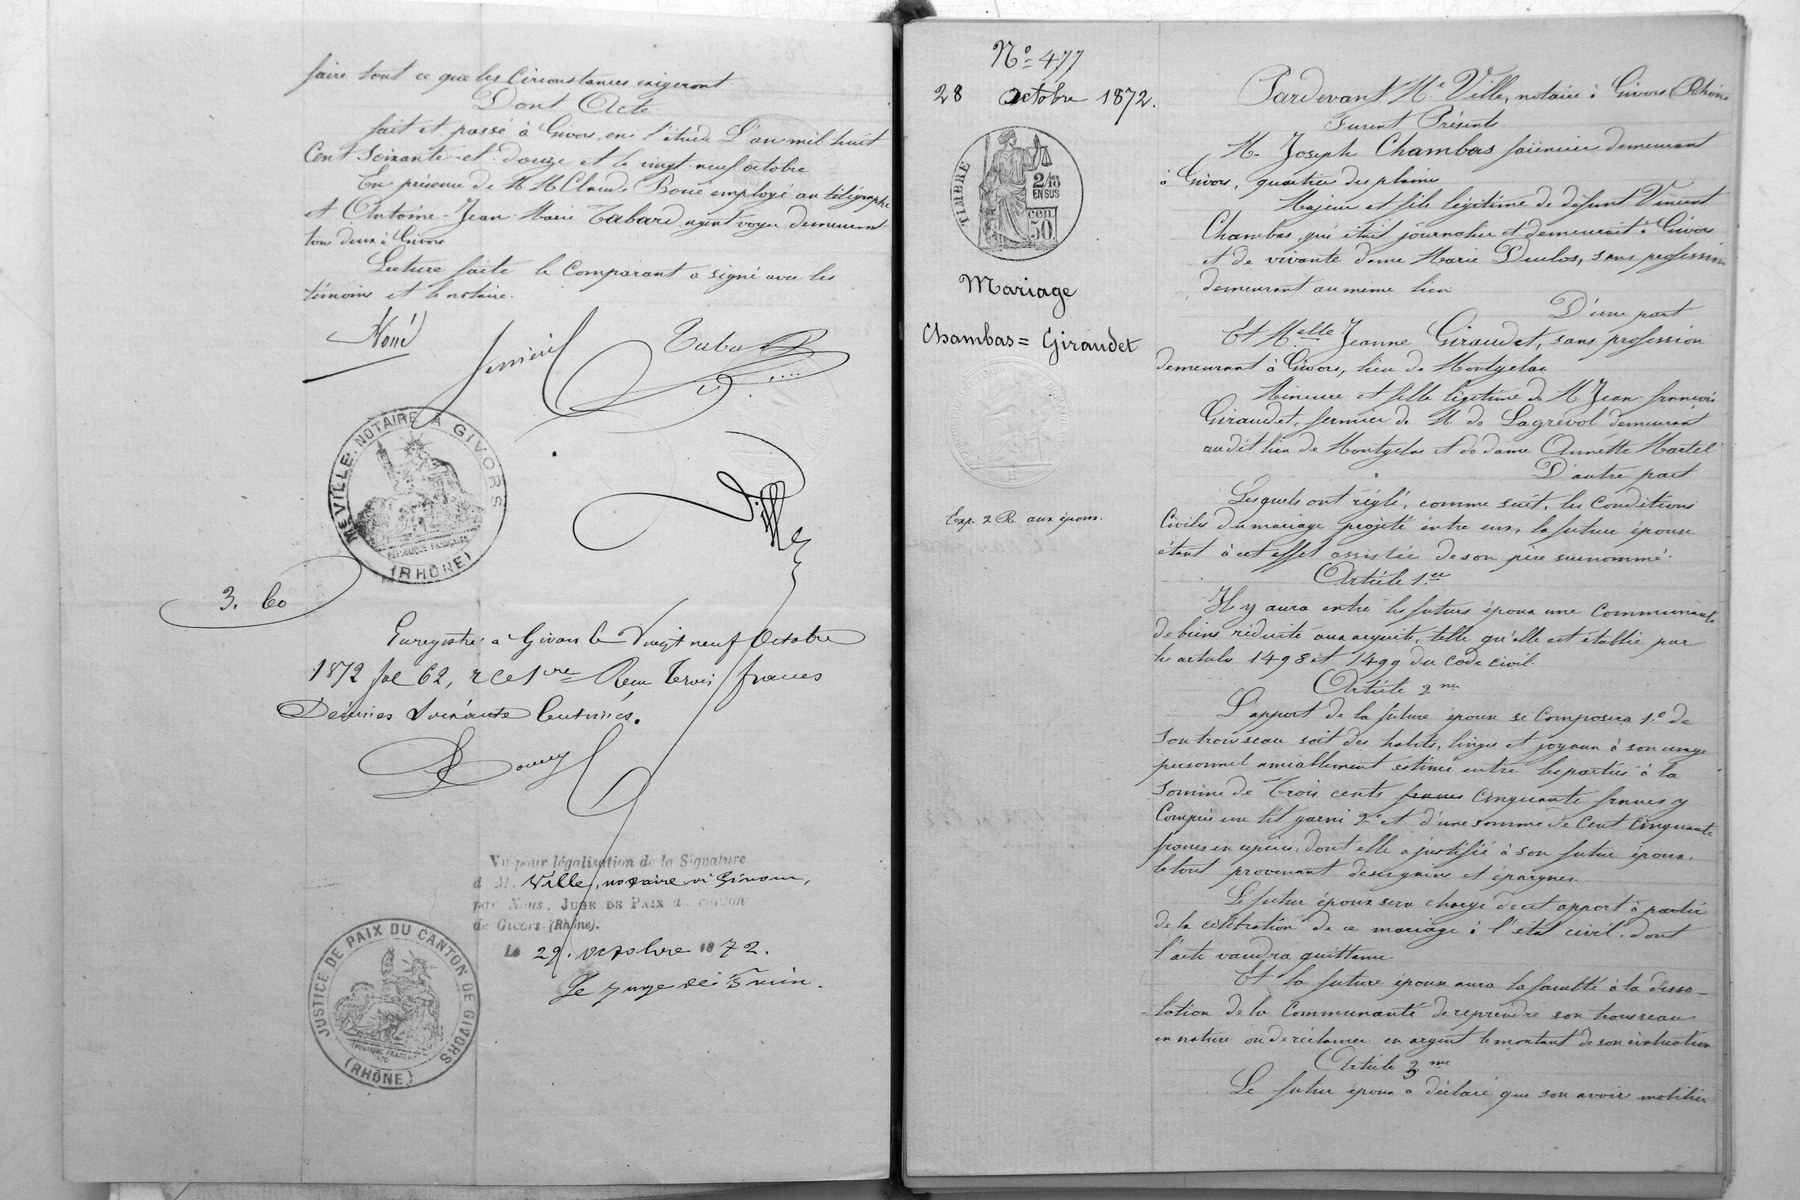 faire tout ce que les Circonstances exigeront.
Dont Acte
fait et passé à Givors, en l'étude L'an mil huit
Cent Soixante-et-Douze et le vingt-neuf octobre
En présence de M M Claude Boué employé au télégraphe
et Antoine-Jean-Marie Tabard, agent voyer demeurant
tous deux à Givors
Lecture faite le Comparant a signé avec les
témoins et le notaire.
Taba
Ville
ME VILLE, NOTAIRE A GIVORS
RÉPUBLIQUE FRANÇAISE
(RHÔNE)
3. 60
Enregistré à Givors le Vingt neuf Octobre
1872 fol 62, r ce 1re Reçu trois francs
Décimes Soixante Centimes.
Vu pour légalisation de la Signature
d M. Ville, notaire à Givors,
par Nous, JUGE DE PAIX du canton
de Givors (Rhône).
Le 29. octobre 1872.
JUSTICE DE PAIX DU CANTON DE GIVORS
(RHÔNE)
No 477
28 Octobre 1872.
TIMBRE
2/10
EN SUS
cen.
50
Mariage
Chambas = Giraudet
Exp. 2 R. aux époux.
Pardevant Me Ville, notaire à Givors (Rhône
Furent Présents
M. Joseph Chambas faïencier demeurant
à Givors, quartier des plaines
Majeur et fils légitime de défunt Vincent
Chambas, qui était journalier et demeurait à Givors
et de vivante dame Marie Duclos, sans profession
demeurant au même lieu
D'une part
Et Melle Jeanne Giraudet, sans profession
demeurant à Givors, lieu de Montgelas
Mineure et fille légitime de M Jean-françois
Giraudet, fermier de M de Lagrevol demeurant
audit lieu de Montgelas et de dame Annette Martel
D'autre part
Lesquels ont réglé, comme suit, les Conditions
Civiles du mariage projeté entre eux, la future épouse
étant à cet effet assistée de son père surnommé.
Article 1er
Il y aura entre les futurs époux une Communauté
de biens réduite aux acquêts, telle qu'elle est établie par
les articles 1498 et 1499 du Code civil.
Article 2me
L'apport de la future épouse se Composera 1o de
son trousseau soit des habits, linges et joyaux à son usage
personnel amiablement estimé entre les parties à la
Somme de Trois cents francs Cinquante francs y
Compris un lit garni 2o et d'une somme de Cent Cinquante
francs en espèces, dont elle a justifié à son futur époux,
le tout provenant de ses gains et épargnes.
Le futur époux sera chargé de cet apport à partir
de la célébration de ce mariage à l'état civil dont
l'acte vaudra quittance
Et la future épouse aura la faculté à la disso-
lution de la Communauté de reprendre son trousseau
en nature ou de réclamer en argent le montant de son évaluation
Article 3me
Le futur époux a déclaré que son avoir mobilier